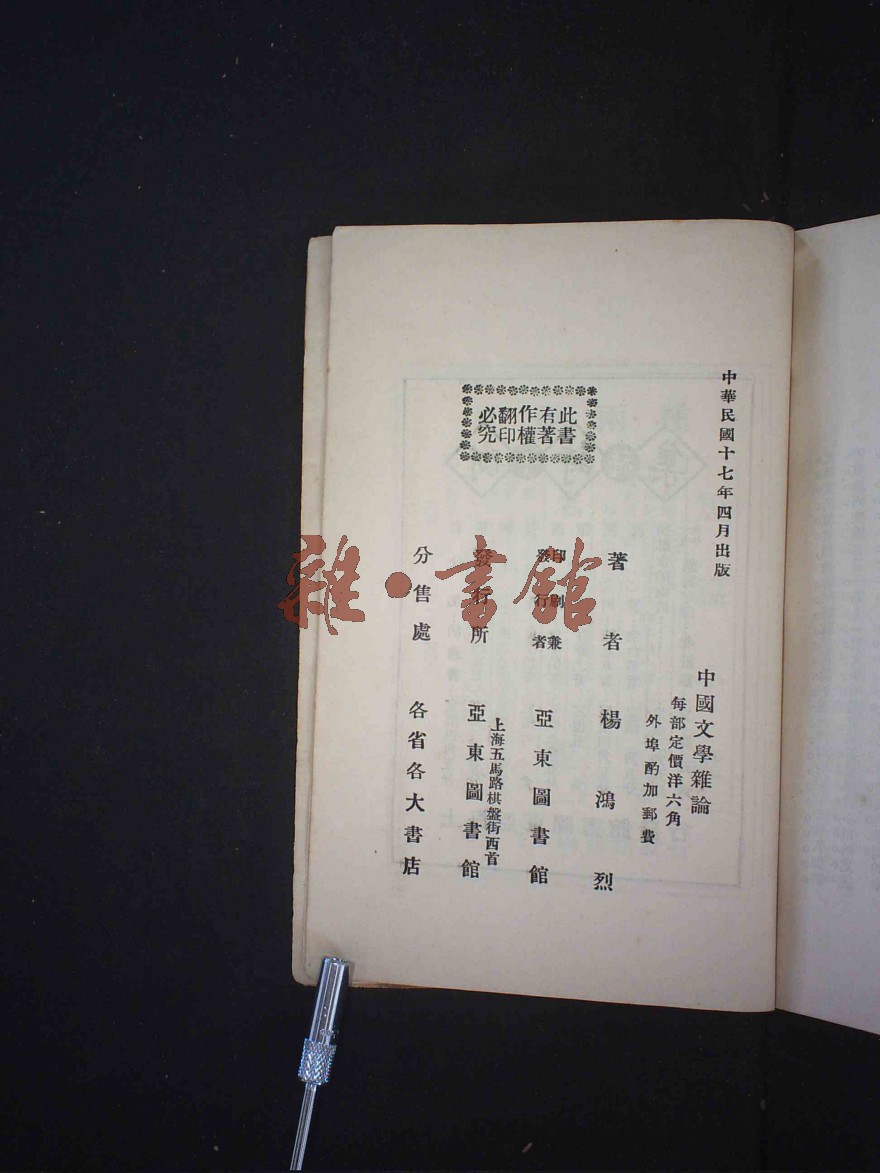 中華民國十七年四月出版
中國文學雜論
每部定價洋六角
外埠酌加郵費
此書
有著
作權
翻印
必究
著者 楊鴻烈
印刷兼
發行者 亞東圖書館
上海五馬路棋盤街西首
發行所 亞東圖書館
分售處 各省各大書店
雜·書館